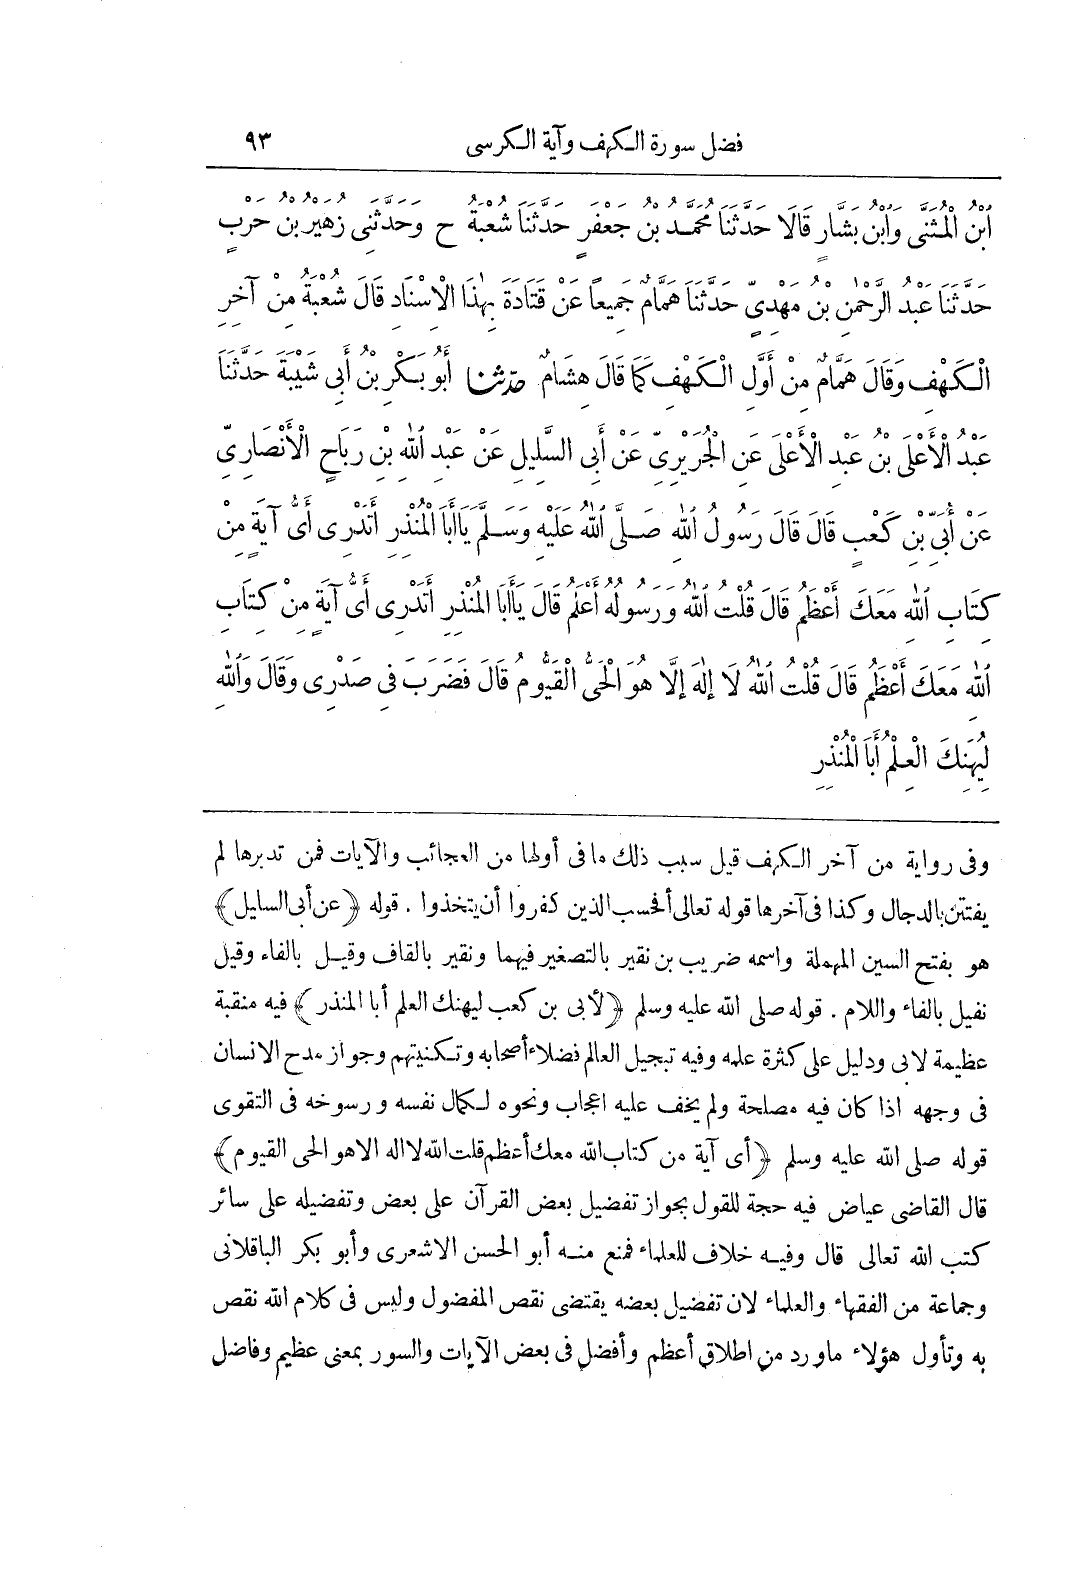 فضل سورة الكهف وآية الكرسى ٩٣
ابْنُ الْمُثَنَّى وَابْنُ بَشَّارٍ قَالَا حَدَّثَنَا مُحَمَّدُ بْنُ جَعْفَرٍ حَدَّثَنَا شُعْبَةُ ح وَحَدَّثَنِى زُهَيْرُ بْنُ حَرْبٍ
حَدَّثَنَا عَبْدُ الرَّحْمٰنِ بْنُ مَهْدِىٍّ حَدَّثَنَا هَمَّامٌ جَمِيعًا عَنْ قَتَادَةَ بِهٰذَا الْاِسْنَادِ قَالَ شُعْبَةُ مِنْ آخِرِ
الْكَهْفِ وَقَالَ هَمَّامٌ مِنْ أَوَّلِ الْكَهْفِ كَمَا قَالَ هِشَامٌ حدثنا أَبُو بَكْرِ بْنُ أَبِى شَيْبَةَ حَدَّثَنَا
عَبْدُ الْأَعْلَى بْنُ عَبْدِ الْأَعْلَى عَنِ الْجُرَيْرِىِّ عَنْ أَبِى السَّلِيلِ عَنْ عَبْدِ اللّٰهِ بْنِ رَبَاحٍ الْأَنْصَارِىِّ
عَنْ أُبَىِّ بْنِ كَعْبٍ قَالَ قَالَ رَسُولُ اللّٰهِ صَلَّى اللّٰهُ عَلَيْهِ وَسَلَّمَ يَا أَبَا الْمُنْذِرِ أَتَدْرِى أَىُّ آيَةٍ مِنْ
كِتَابِ اللّٰهِ مَعَكَ أَعْظَمُ قَالَ قُلْتُ اللّٰهُ وَرَسُولُهُ أَعْلَمُ قَالَ يَا أَبَا الْمُنْذِرِ أَتَدْرِى أَىُّ آيَةٍ مِنْ كِتَابِ
اللّٰهِ مَعَكَ أَعْظَمُ قَالَ قُلْتُ اللّٰهُ لَا إِلٰهَ إِلَّا هُوَ الْحَىُّ الْقَيُّومُ قَالَ فَضَرَبَ فِى صَدْرِى وَقَالَ وَاللّٰهِ
لِيَهْنِكَ الْعِلْمُ أَبَا الْمُنْذِرِ
وفى رواية من آخر الكهف قيل سبب ذلك مافى أولها من العجائب والآيات فمن تدبرها لم
يفتتن بالدجال وكذا فى آخرها قوله تعالى أفحسب الذين كفروا أن يتخذوا . قوله ﴿عن أبى السليل﴾
هو بفتح السين المهملة واسمه ضريب بن نقير بالتصغير فيهما ونقير بالقاف وقيل بالفاء وقيل
نفيل بالفاء واللام . قوله صلى الله عليه وسلم ﴿لأبى بن كعب ليهنك العلم أبا المنذر﴾ فيه منقبة
عظيمة لابى ودليل على كثرة علمه وفيه تبجيل العالم فضلاء أصحابه وتكنيتهم وجواز مدح الانسان
فى وجهه اذا كان فيه مصلحة ولم يخف عليه اعجاب ونحوه لكمال نفسه ورسوخه فى التقوى
قوله صلى الله عليه وسلم ﴿أى آية من كتاب الله معك أعظم قلت الله لا اله الا هو الحى القيوم﴾
قال القاضى عياض فيه حجة للقول بجواز تفضيل بعض القرآن على بعض وتفضيله على سائر
كتب الله تعالى قال وفيه خلاف للعلماء فمنع منه أبو الحسن الاشعرى وأبو بكر الباقلانى
وجماعة من الفقهاء والعلماء لان تفضيل بعضه يقتضى نقص المفضول وليس فى كلام الله نقص
به وتأول هؤلاء ماورد من اطلاق أعظم وأفضل فى بعض الآيات والسور بمعنى عظيم وفاضل